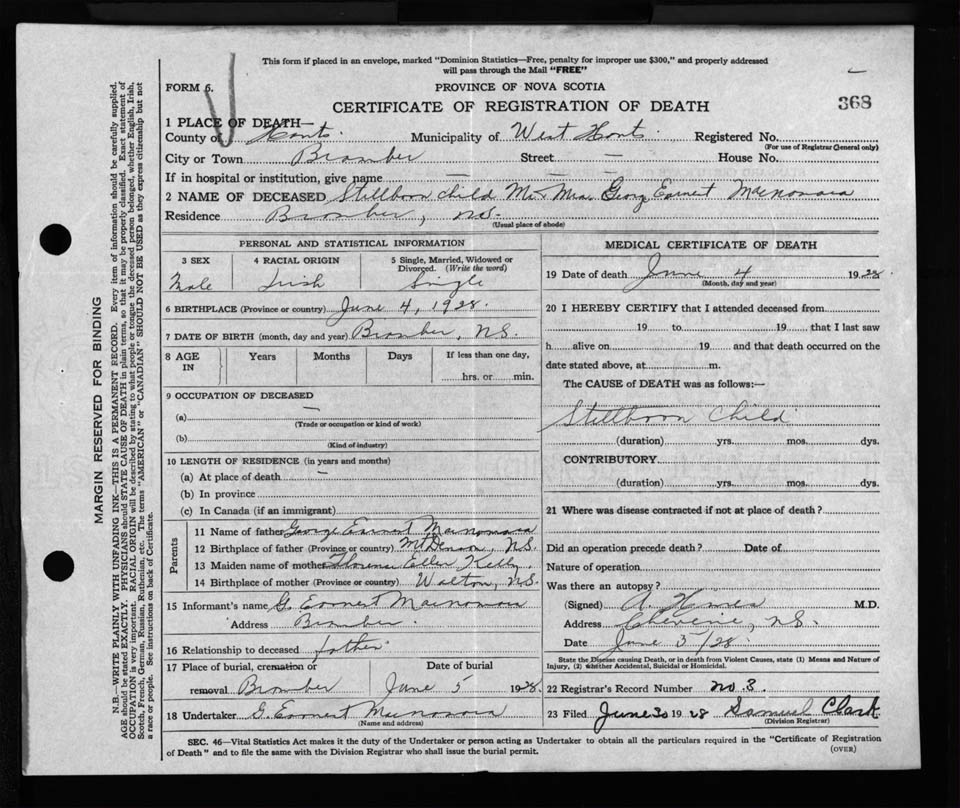 This form if placed in an envelope, marked "Dominion Statistics—Free, penalty for improper use $300," and properly addressed
will pass through the Mail "FREE"
FORM 6.
PROVINCE OF NOVA SCOTIA
CERTIFICATE OF REGISTRATION OF DEATH
368
1 PLACE OF DEATH—
County of Hants. Municipality of West Hants. Registered No.
(For use of Registrar General only)
City or Town Bramber Street — House No.
If in hospital or institution, give name — — —
2 NAME OF DECEASED Stillborn child Mr & Mrs. Georg Earnest Macnamara
Residence Bramber, N.S.
(Usual place of abode)
PERSONAL AND STATISTICAL INFORMATION
3 SEX 4 RACIAL ORIGIN 5 Single, Married, Widowed or Divorced. (Write the word)
Male Irish Single
6 BIRTHPLACE (Province or country) June 4, 1928.
7 DATE OF BIRTH (month, day and year) Bramber, N.S.
8 AGE IN Years Months Days If less than one day,
hrs. or min.
9 OCCUPATION OF DECEASED
(a) —
(Trade or occupation or kind of work)
(b)
(Kind of industry)
10 LENGTH OF RESIDENCE (in years and months)
(a) At place of death —
(b) In province
(c) In Canada (if an immigrant)
Parents
11 Name of father George Earnest Macnamara
12 Birthplace of father (Province or country) Mt Denson, N.S.
13 Maiden name of mother Florence Ellen Kelly.
14 Birthplace of mother (Province or country) Walton, N.S.
15 Informant's name G. Earnest Macnamara
Address Bramber.
16 Relationship to deceased father
17 Place of burial, cremation or removal Bramber Date of burial June 5 1928.
18 Undertaker G. Earnest Macnamara
(Name and address)
MEDICAL CERTIFICATE OF DEATH
19 Date of death June 4 1928.
(Month, day and year)
20 I HEREBY CERTIFY that I attended deceased from
19 to 19 that I last saw
h alive on 19 and that death occurred on the
date stated above, at m.
The CAUSE of DEATH was as follows:—
Stillborn Child
(duration) yrs. mos. dys.
CONTRIBUTORY
(duration) yrs. mos. dys.
21 Where was disease contracted if not at place of death?
Did an operation precede death? Date of
Nature of operation
Was there an autopsy?
(Signed) A. M.D.
Address Cheverie, N.S.
Date June 5/28.
State the Disease causing Death, or in death from Violent Causes, state (1) Means and Nature of
Injury, (2) whether Accidental, Suicidal or Homicidal.
22 Registrar's Record Number No 3.
23 Filed June 30 1928 Samuel Clark
(Division Registrar)
SEC. 46—Vital Statistics Act makes it the duty of the Undertaker or person acting as Undertaker to obtain all the particulars required in the "Certificate of Registration
of Death" and to file the same with the Division Registrar who shall issue the burial permit.
(OVER)
MARGIN RESERVED FOR BINDING
N.B.—WRITE PLAINLY WITH UNFADING INK—THIS IS A PERMANENT RECORD. Every item of information should be carefully supplied.
AGE should be stated EXACTLY. PHYSICIANS should STATE CAUSE OF DEATH in plain terms, so that it may be properly classified. Exact statement of
OCCUPATION is very important. RACIAL ORIGIN will be described by stating to what people or tongue the deceased person belonged, whether English, Irish,
Scotch, French, German, Russian, Ruthenian, etc. The terms "AMERICAN" or "CANADIAN" SHOULD NOT BE USED as they express citizenship but not
a race or people. See instructions on back of Certificate.